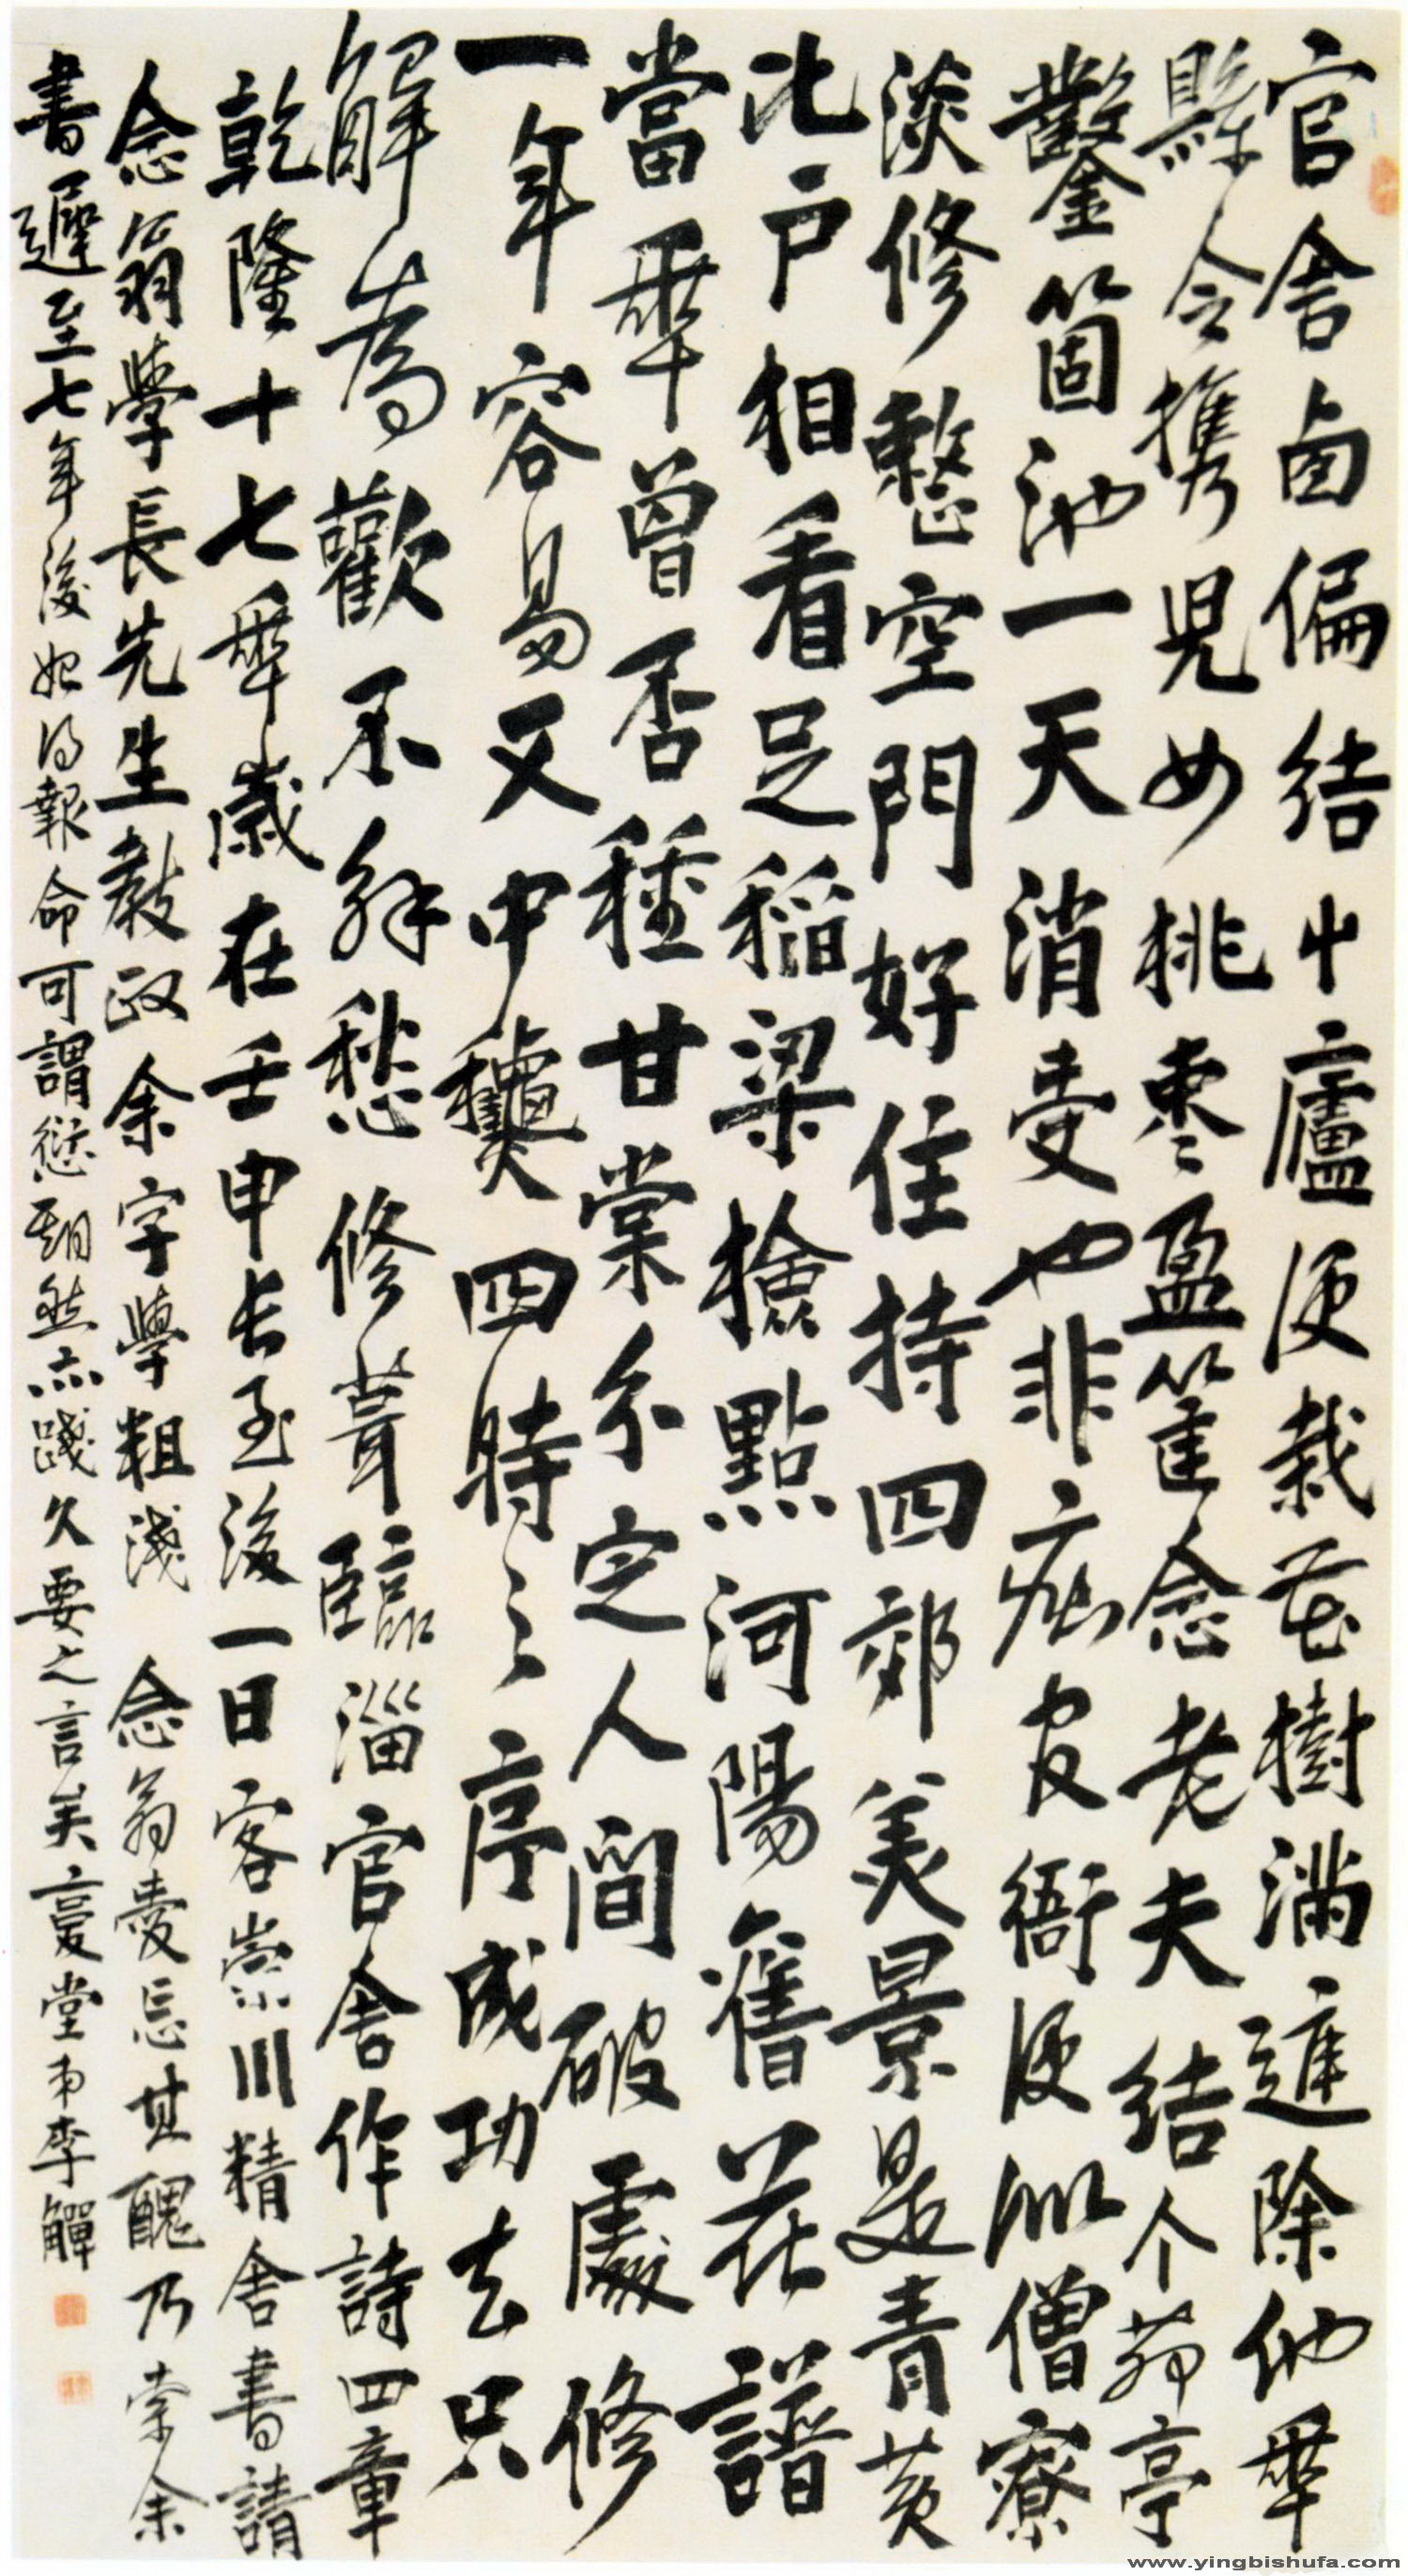 官舍鹵偏結屮廬便栽花樹滿遮除他年
縣令攜児女桃棗盈筐念老夫結个茆亭
鑿箇池一天消受也非疵官衙便似僧寮
淡修整空門好住持四郊美景是青黃
比户相看足稻粱撿點河陽舊花譜
當年曾否種甘棠不定人間破處修
一年容易又中龝四時之序成功去只
解為歡不解愁修葺臨淄官舍作詩四章
乾隆十七年歲在壬申長至後一日客崇川精舍書請
念翁學長先生教政余字學粗淺念翁愛忘其醜乃索余
書遲至七年後始得報命可謂愆期然亦踐久要之言矣憂堂弟李觶
www.yingbishufa.com